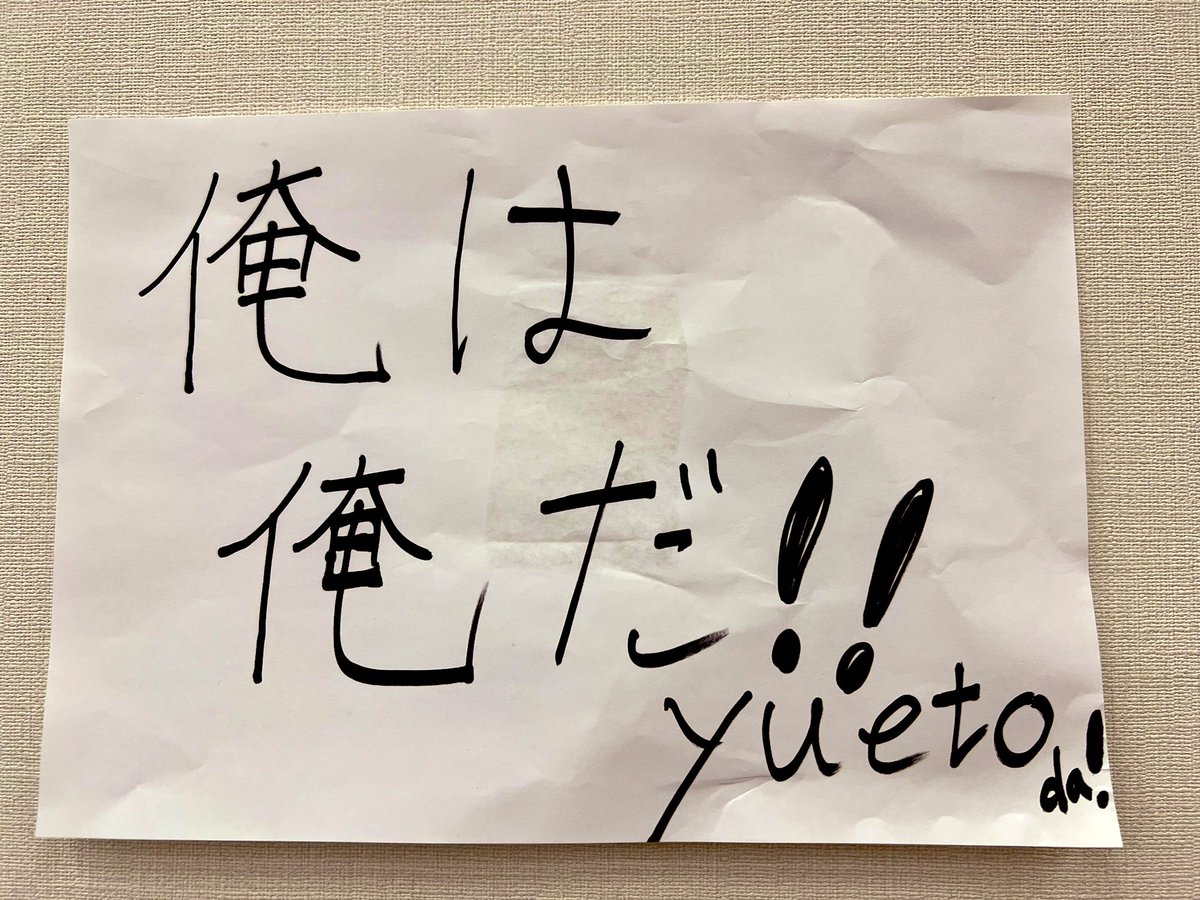 俺は
俺だ!!
yueto
da!